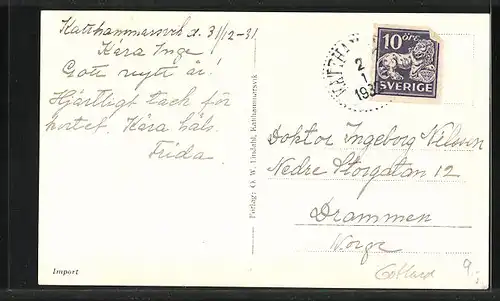 Katthammarsvik d. 31/12-31
Kära Inge
Gott nytt år!
Hjärtligt tack för
kortet. Kära häls.
Frida.
Import
Förlag: O. W. Lindahl, Katthammarsvik
KATTHAM
2
1
193
10 ÖRE
SVERIGE
Doktor Ingeborg Nilsson
Nedre Storgatan 12
Drammen
Norge
Gotland
9:-